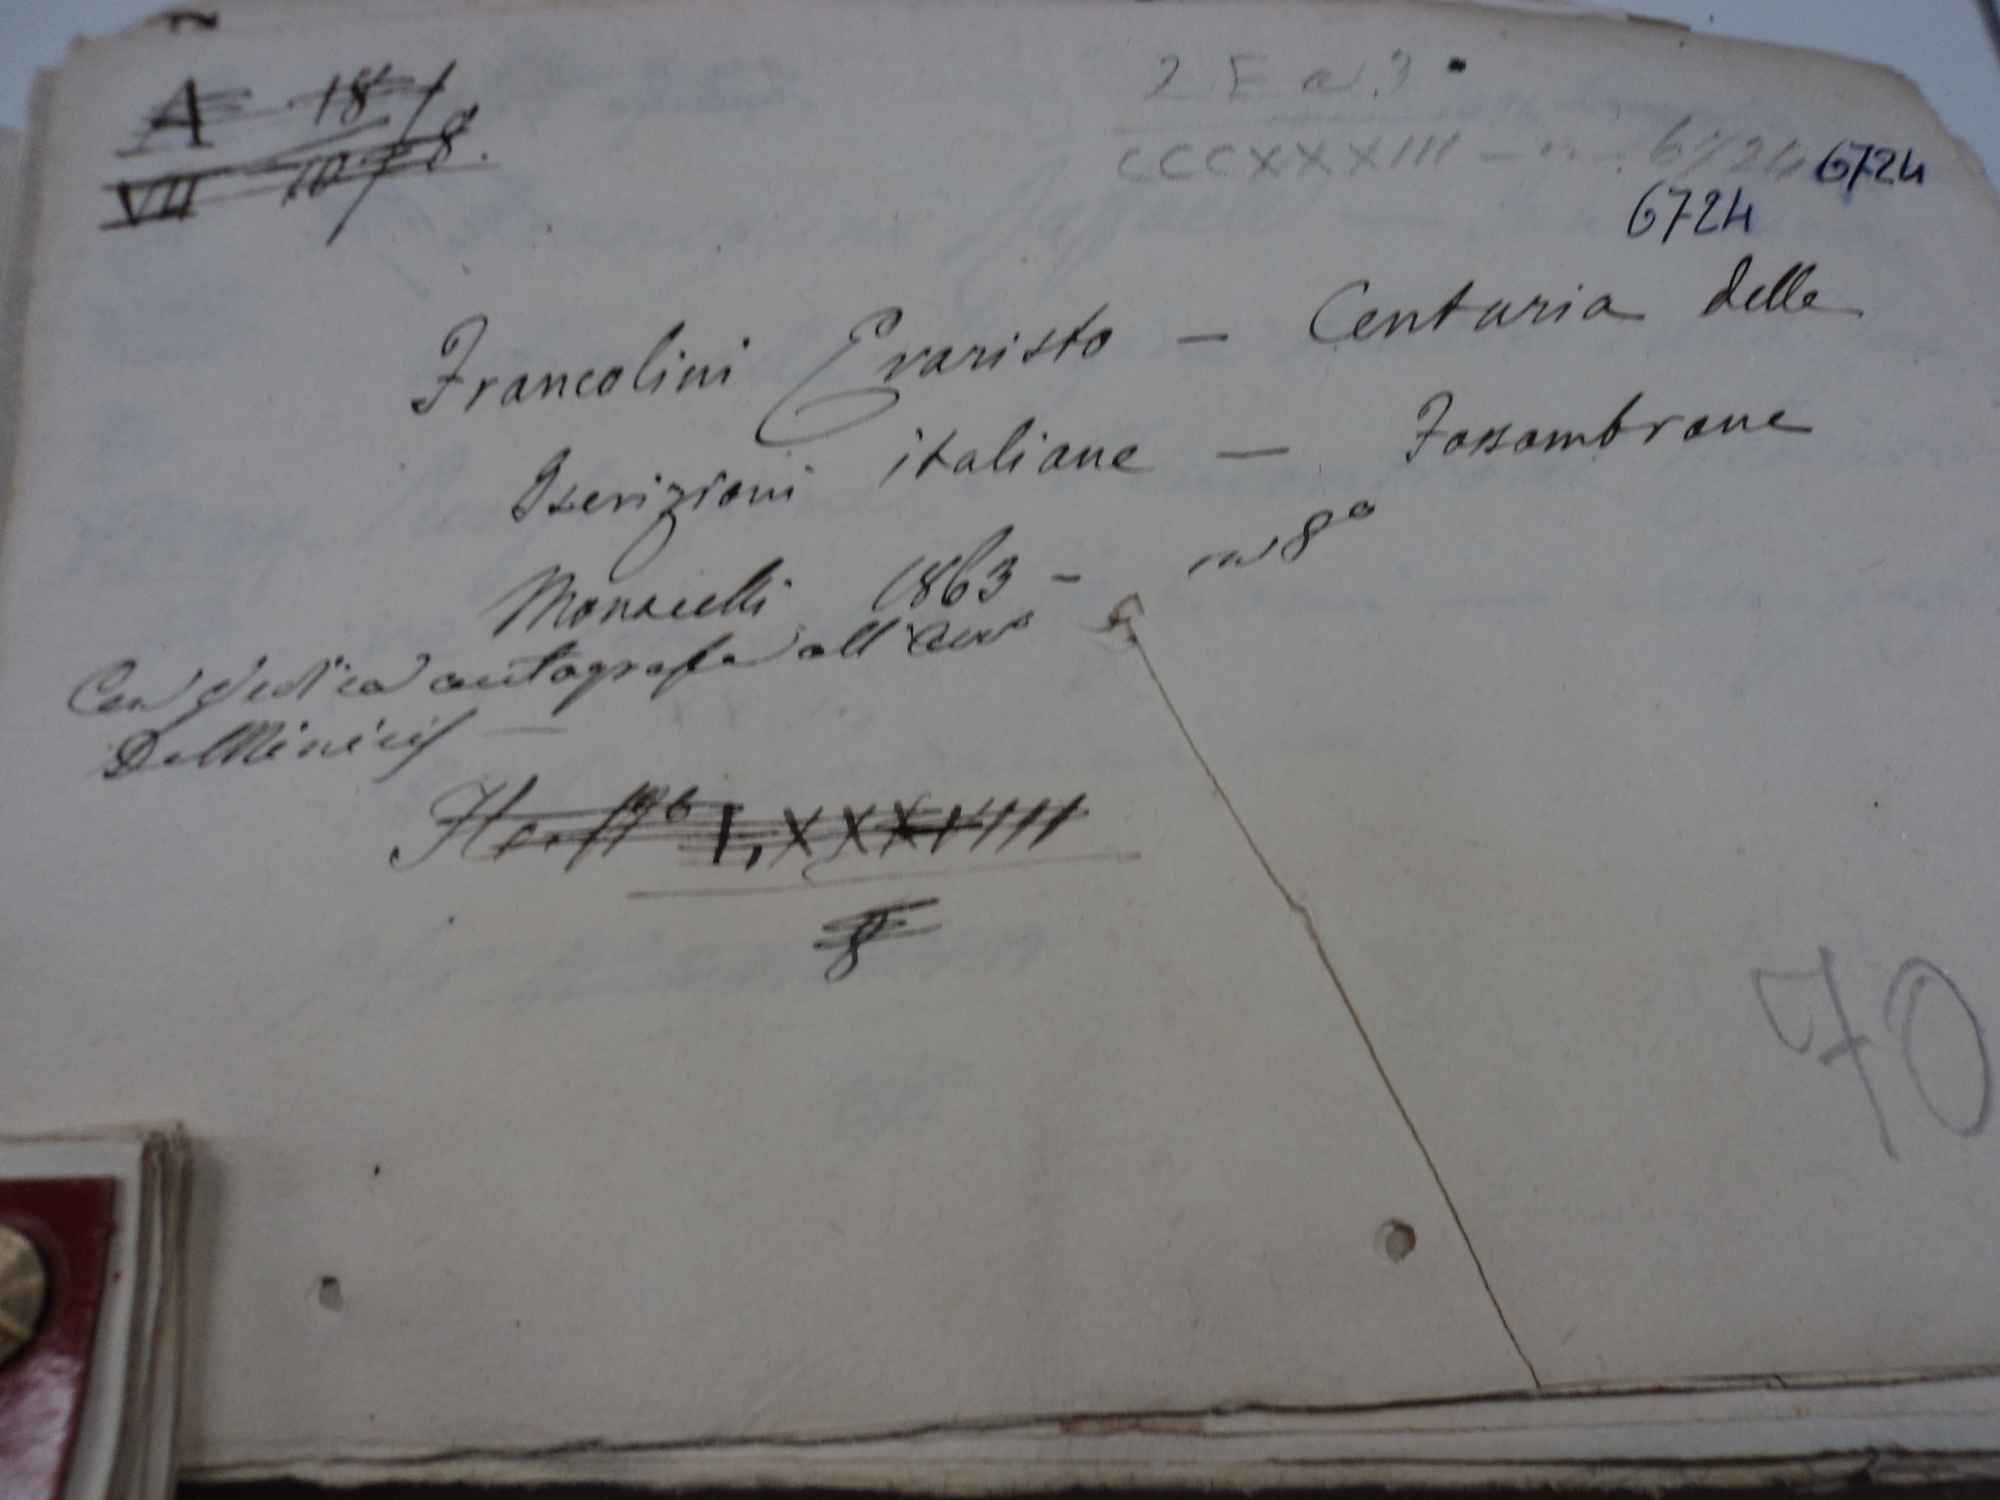 A 18
VII 1078.
2 E a 3
CCCXXXIII - n. 6724 6724
6724
Francolini Evaristo - Centuria delle
Iscrizioni italiane - Fossombrone
Monacelli 1863 - in 8°
Con dedica autografa all'Avv°
De Minicis -
I, XXXVIII
8
70